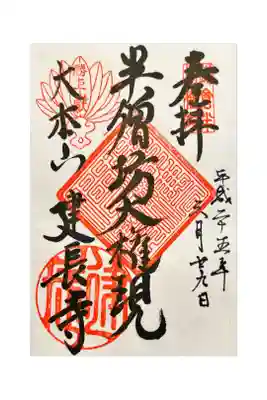 奉拝
平成二十五年
六月廿九日
半僧坊大権現
大本山 建長寺